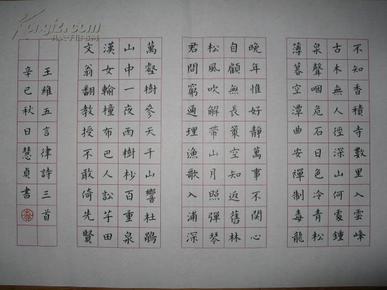 不知香積寺數里入雲峰
古木無人徑深山何處鐘
泉聲咽危石日色冷青松
薄暮空潭曲安禪制毒龍
晚年惟好靜萬事不關心
自顧無長策空知返舊林
松風吹解帶山月照彈琴
君問窮通理漁歌入浦深
萬壑樹參天千山響杜鵑
山中一夜雨樹杪百重泉
漢女輸橦布巴人訟芋田
文翁翻教授不敢倚先賢
王維五言律詩三首
辛巳秋日慧貞書